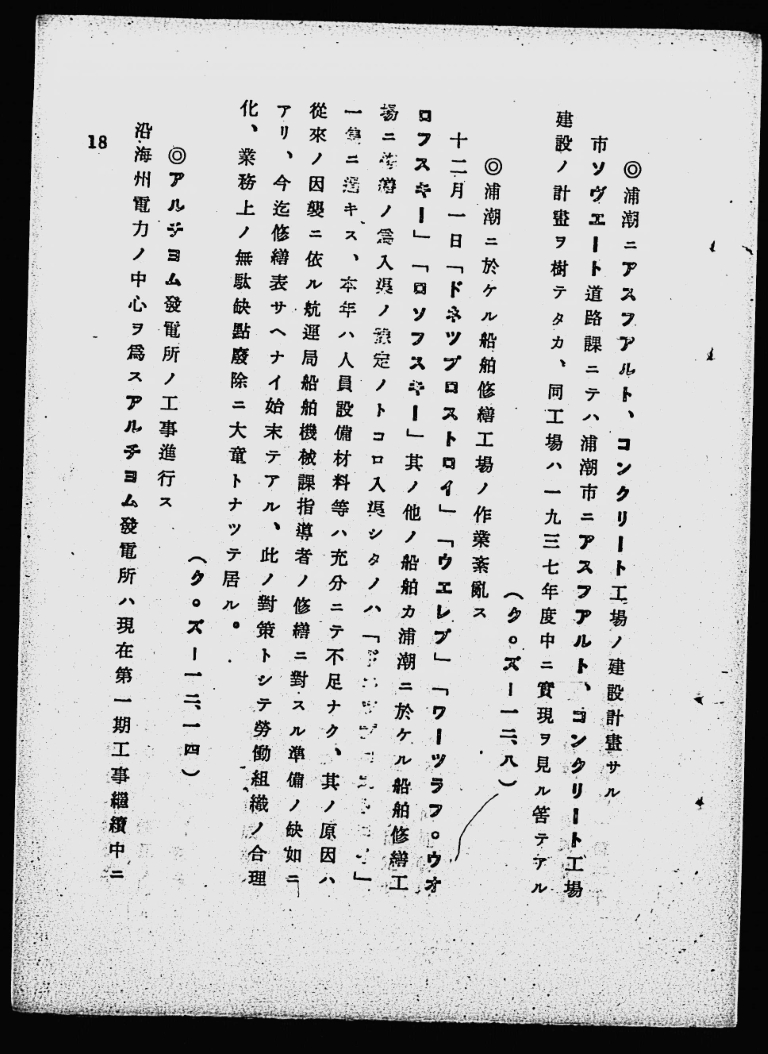 ◎浦潮ニアスフアルト、コンクリート工場ノ建設計畫サル
市ソヴエート道路課ニテハ浦潮市ニアスフアルト、コンクリート工場
建設ノ計畫ヲ樹テタカ、同工場ハ一九三七年度中ニ實現ヲ見ル筈テアル
(ク。ズー一二、八)
◎浦潮ニ於ケル船舶修繕工場ノ作業紊亂ス
十二月一日「ドネツプロストロイ」「ウエレブ」「ワーツラフ。ウオ
ロフスキー」「ロソフスキー」其ノ他ノ船舶カ浦潮ニ於ケル船舶修繕工
場ニ修繕ノ爲入渠ノ豫定ノトコロ入渠シタノハ「ドネツプロストロイ」
一隻ニ過キス、本年ハ人員設備材料等ハ充分ニテ不足ナク、其ノ原因ハ
從來ノ因襲ニ依ル航運局船舶機械課指導者ノ修繕ニ對スル準備ノ缺如ニ
アリ、今迄修繕表サヘナイ始末テアル、此ノ對策トシテ勞働組織ノ合理
化、業務上ノ無駄缺點廢除ニ大童トナツテ居ル。
(ク。ズー一二、一四)
◎アルチヨム發電所ノ工事進行ス
沿海州電力ノ中心ヲ爲スアルチヨム發電所ハ現在第一期工事繼續中ニ
18